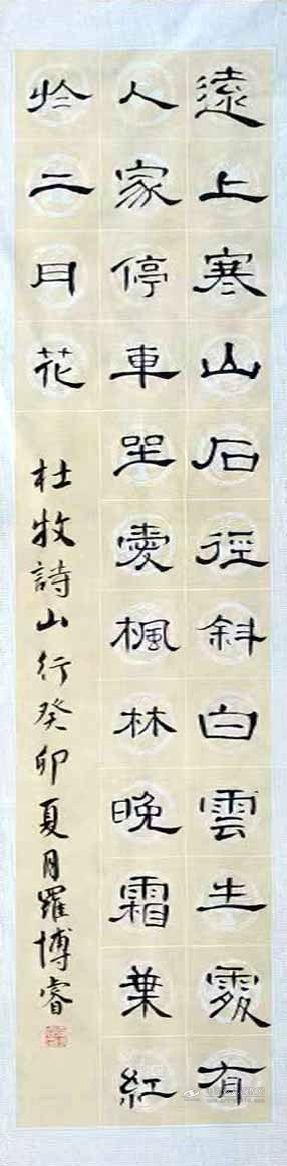 遠上寒山石徑斜白雲生處有
人家停車坐愛楓林晚霜葉紅
於二月花
杜牧詩山行癸卯夏月羅博睿